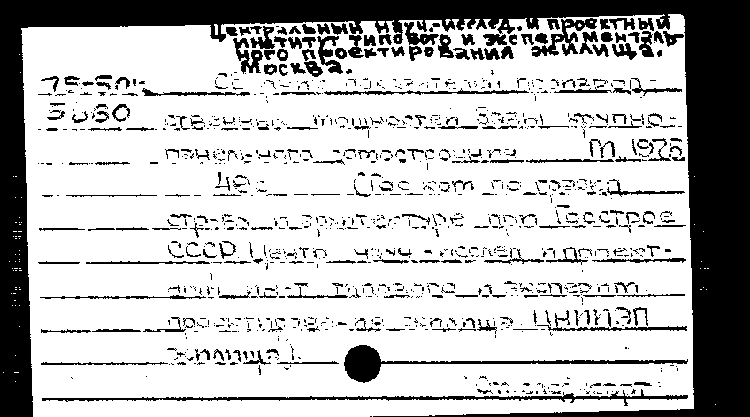 Центральный науч.-исслед. и проектный
институт типового и эксперименталь
ного проектирования жилища.
Москва.
75-50к показателей производ-
5680 ственных мощностей базы крупно-
панельного домостроения М. 1975
48с (Гос ком по гражд
стр-ву и архитектуре при Госстрое
СССР Центр науч.-исслед и проект-
ный ин-т типового и эксперим
проектирова-ия жилища ЦНИИЭП
жилища).
См след карт